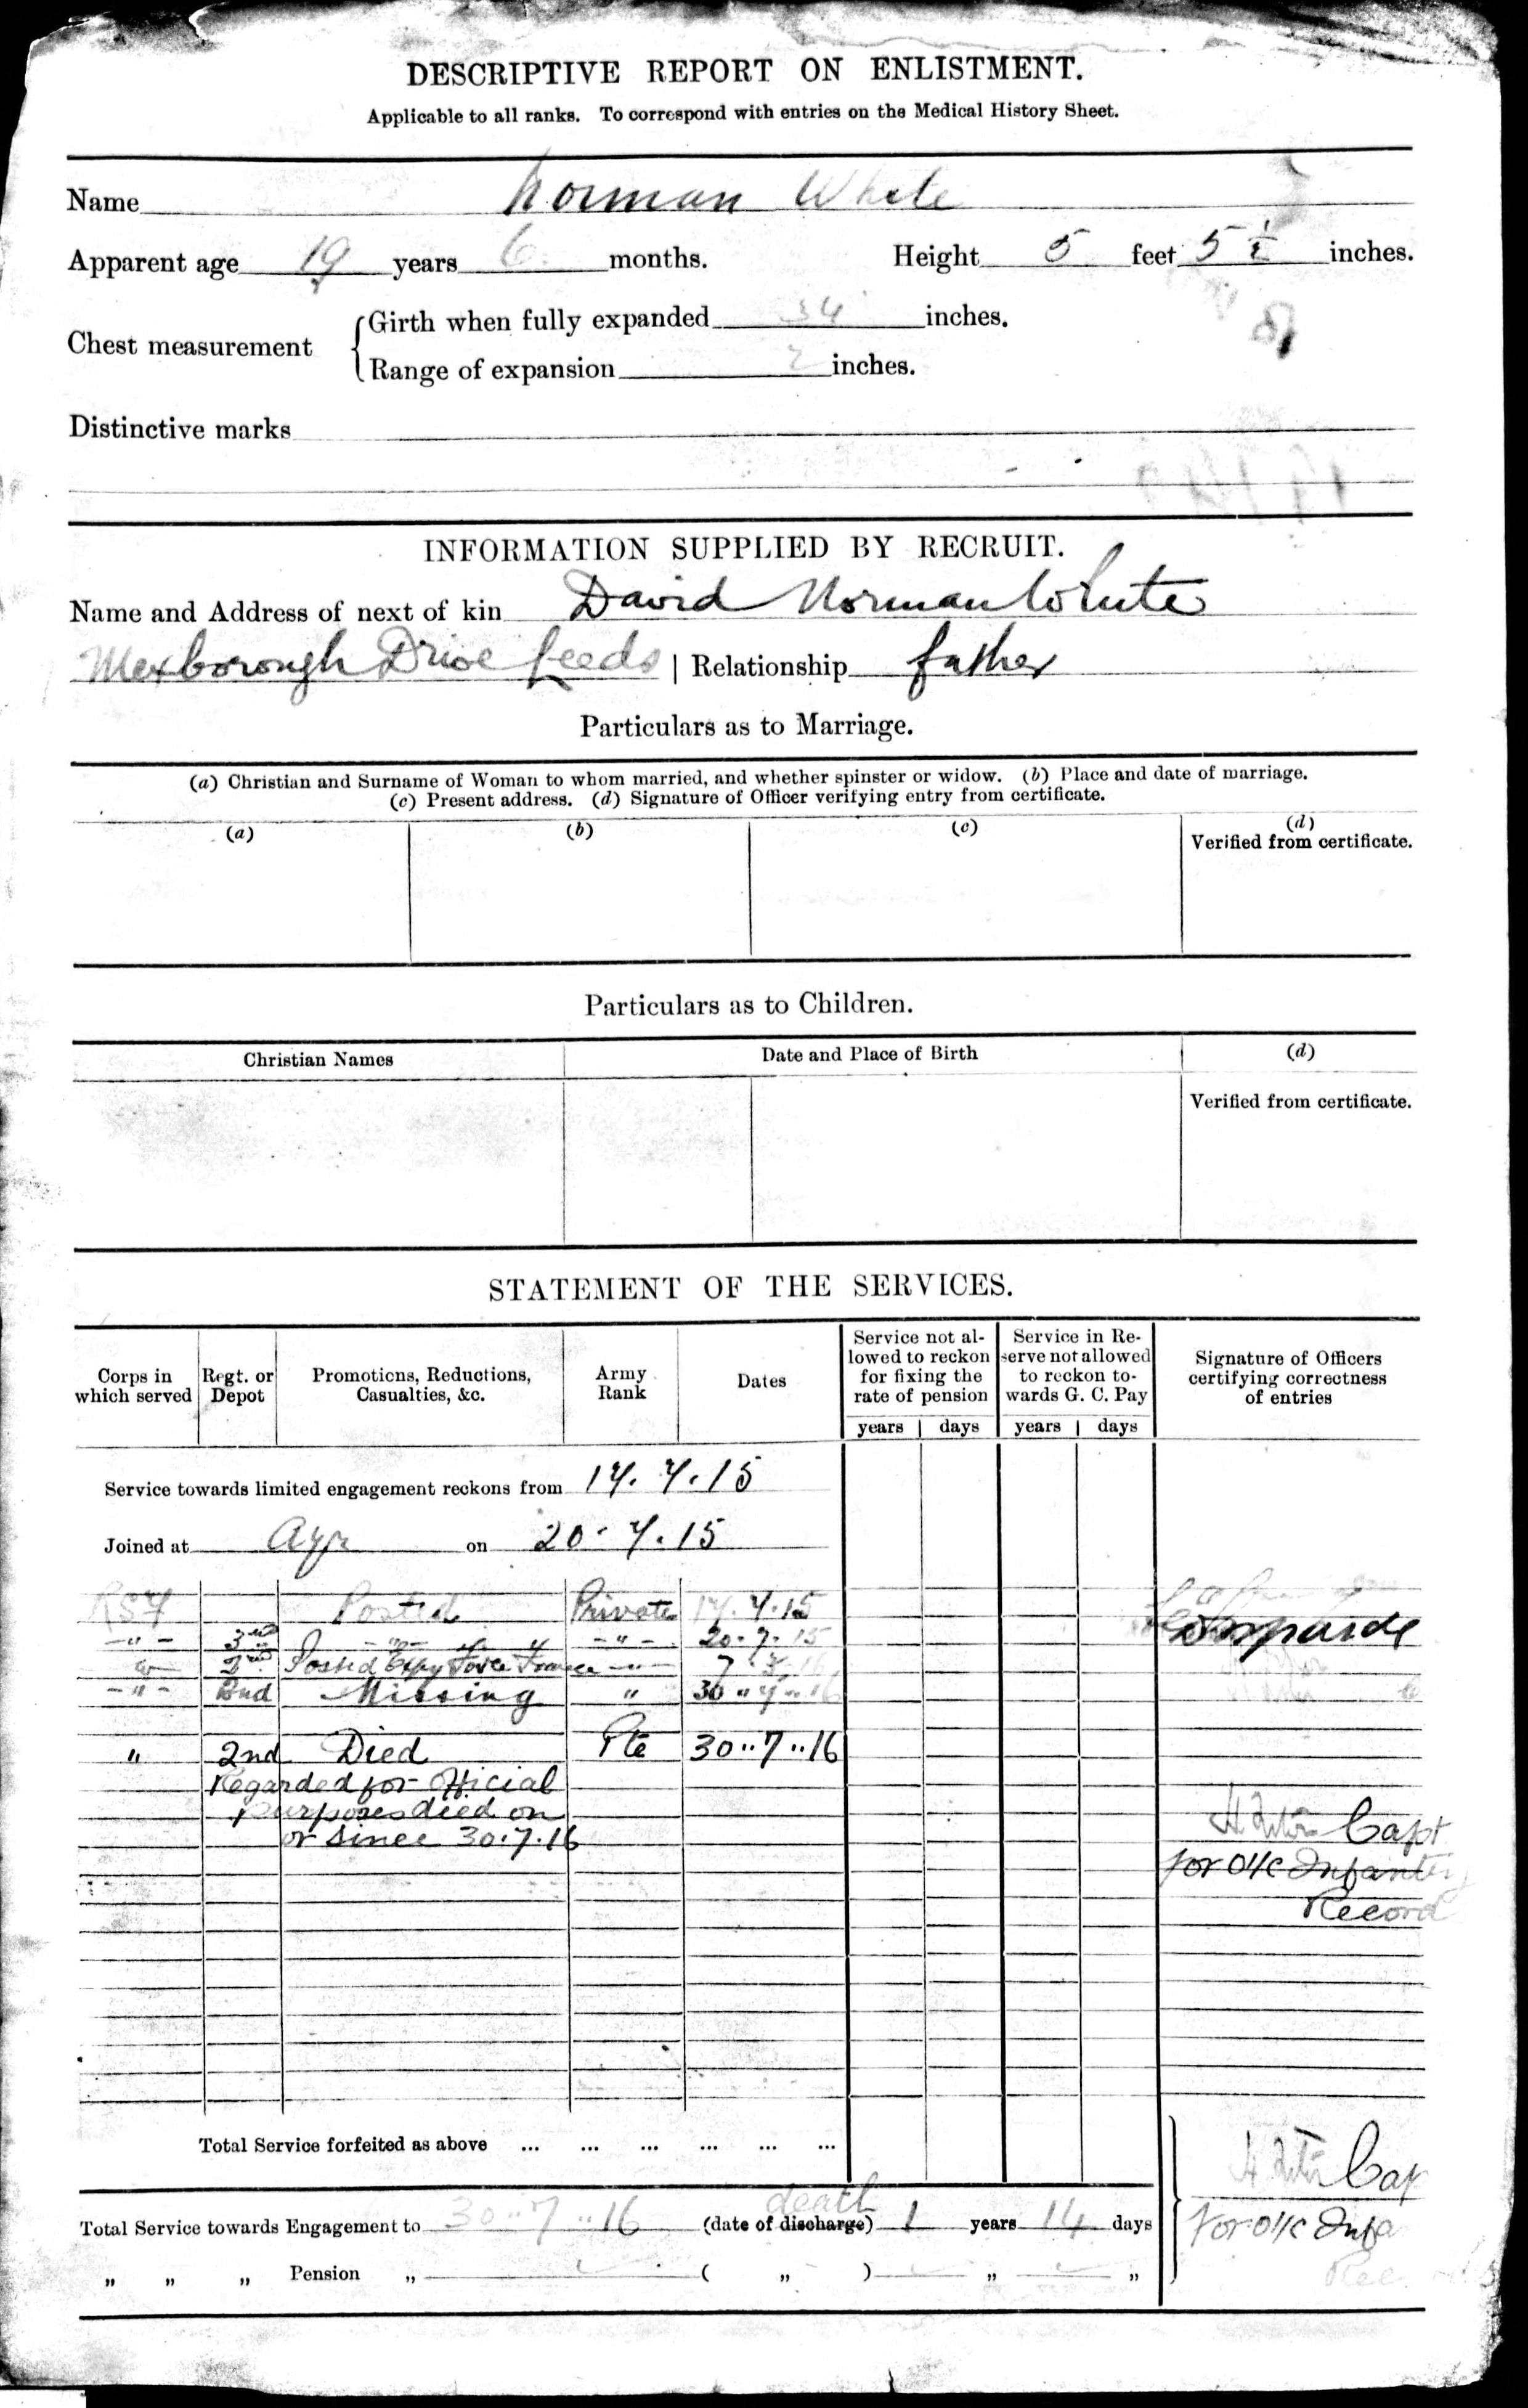 DESCRIPTIVE REPORT ON ENLISTMENT.
Applicable to all ranks. To correspond with entries on the Medical History Sheet.
Name Norman White
Apparent age 19 years 6 months. Height 5 feet 5 ½ inches.
Chest measurement
Girth when fully expanded 34 inches.
Range of expansion 2 inches.
Distinctive marks
INFORMATION SUPPLIED BY RECRUIT.
Name and Address of next of kin David Norman White
Mexborough Drive Leeds | Relationship father
Particulars as to Marriage.
(a) Christian and Surname of Woman to whom married, and whether spinster or widow. (b) Place and date of marriage.
(c) Present address. (d) Signature of Officer verifying entry from certificate.
(a) (b) (c) (d)
Verified from certificate.
Particulars as to Children.
Christian Names Date and Place of Birth (d)
Verified from certificate.
STATEMENT OF THE SERVICES.
Corps in which served Regt. or Depot Promotions, Reductions, Casualties, &c. Army Rank Dates Service not allowed to reckon for fixing the rate of pension Service in Reserve not allowed to reckon towards G. C. Pay Signature of Officers certifying correctness of entries
years days years days
Service towards limited engagement reckons from 17.7.15
Joined at Ayr on 20.7.15
RSF Posted Private 17.7.15
-"- 3rd -"- -"- 20.7.15
2nd Posted Expy Force France -"- 7
-"- 2nd Missing " 30"7"16
" 2nd Died Pte 30"7"16
Regarded for Official
purposes died on
or since 30.7.16
Capt
for O/C Infantry
Record
Total Service forfeited as above ... ... ... ... ... ...
death
Total Service towards Engagement to 30"7"16 (date of discharge) 1 years 14 days
" " " Pension " ( " ) " "
Cap
For O/C Infa
Rec